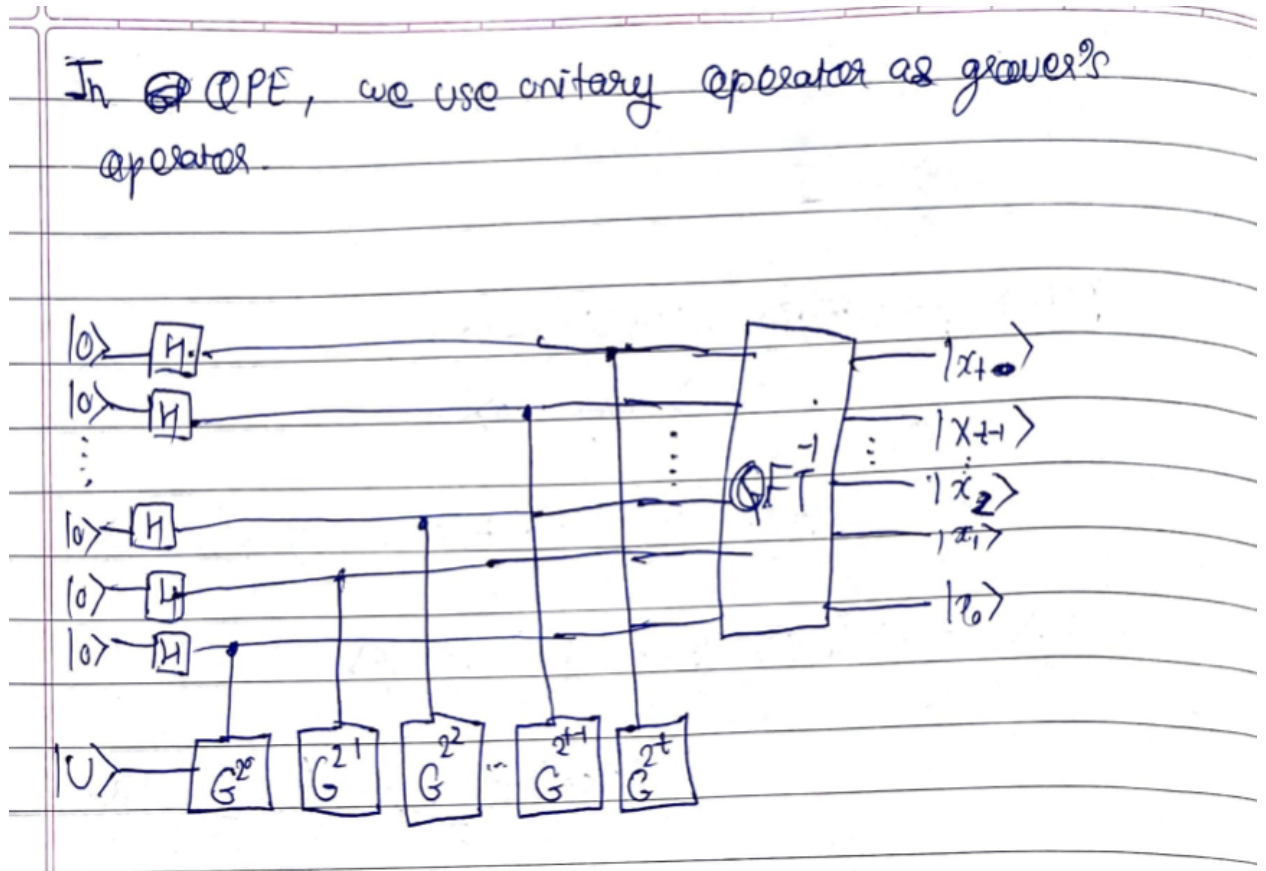 In QPE, we use unitary operator as grover's
operator.
|0⟩ H |x_t⟩
|0⟩ H |x_{t-1}⟩
⋮ ⋮ ⋮
QFT^{-1}
|0⟩ H |x_2⟩
|0⟩ H |x_1⟩
|0⟩ H |x_0⟩
|U⟩ G^{2^0} G^{2^1} G^{2^2} ... G^{2^{t-1}} G^{2^t}